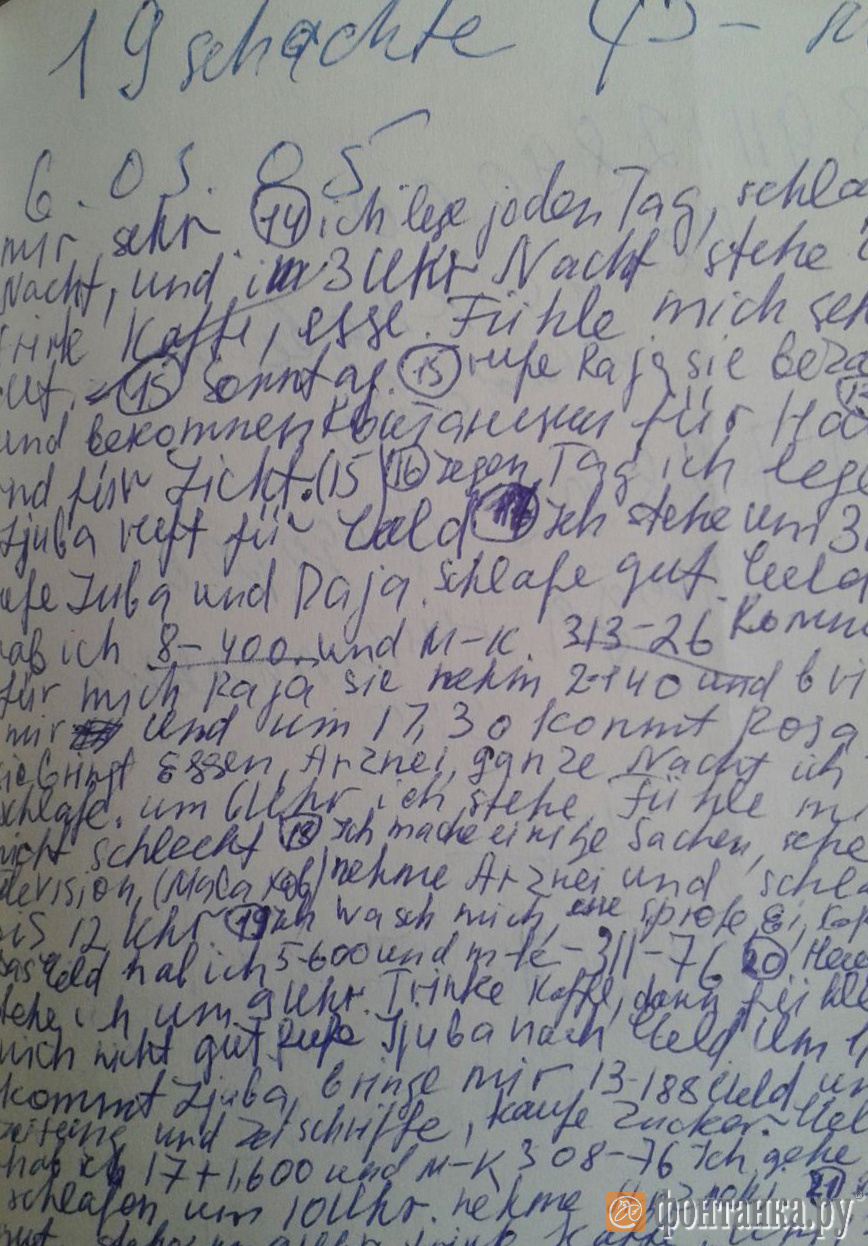 19 schachte 43 -
6.05.05
mir sehr (14) ich lege jeden Tag, schla
Nacht, und im 3 Uhr Nacht stehe
trinke Kaffe, esse. Fühle mich seh
gut. (15) Sonntag. (15) rufe Raja sie beza
und bekommen Квитанции für Ha
nd für Licht. (15) (16) Tag ich lege
Ljuba ruft für Geld (17) Ich stehe um 3
ufe Juba und Raja. schlafe gut. Geld
hab ich 8-400. und M-K. 313-26 Komm
für mich Raja sie nehm 2-140 und bri
mir und um 17,30 kommt Rosa
sie bringt Essen, Arznei, ganze Nacht ich
schlafe. um 6 Uhr ich stehe, Fühle mi
nicht schlecht (18) Ich mache einige Sachen, sehe
levision, (Малахов) nehme Arznei und schla
bis 12 Uhr. (19) Ich wasch mich, esse sprote, Ei, Kaf
das Geld hab ich 5-600 und m-k-311-76 (20). Heu
stehe ich um 9 Uhr. Trinke Kaffe, dann
mich nicht gut, Rufe Ljuba nach Geld um 1
kommt Ljuba, bringe mir 13-188 Geld un
zeitung und Zetschriffte, kaufe Zucker. Gel
hab ich 17+1,600 und M-K 308-76 Ich gehe
schlafen um 10 Uhr. nehme Arznei. (21)
фонтанка.ру